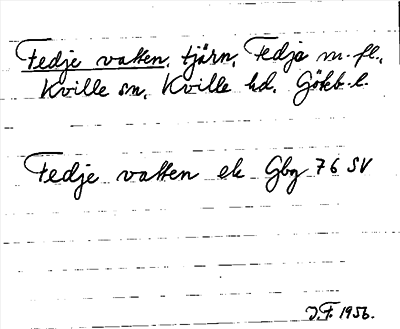 Tedje vatten, tjärn, Tedje m. fl.,
Kville sn, Kville hd. Göteb. l.
Tedje vatten ek Gbg 76 SV
J.F. 1956.